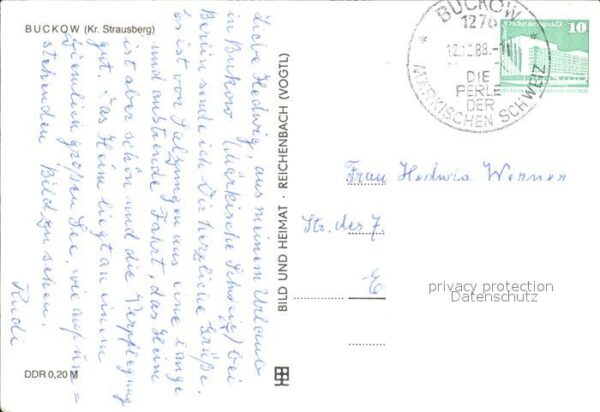 BUCKOW (Kr. Strausberg)
Liebe Hedwig, aus meinem Urlaub
in Buckow (Märkische Schweiz) bei
Berlin sende ich Dir herzliche Grüße.
Es ist von Salzungen aus eine lange
und anstrengende Fahrt, das Heim
ist aber schön und die Verpflegung
gut. Das Heim liegt an einem
ziemlich großen See, wie auf um=
stehenden Bild zu sehen.
Rudi
DDR 0,20 M
BILD UND HEIMAT · REICHENBACH (VOGTL)
BUCKOW
1276
DIE
PERLE
DER
MÄRKISCHEN SCHWEIZ
10
Frau Hedwig Werner
Str. des 7.
E
privacy protection
Datenschutz